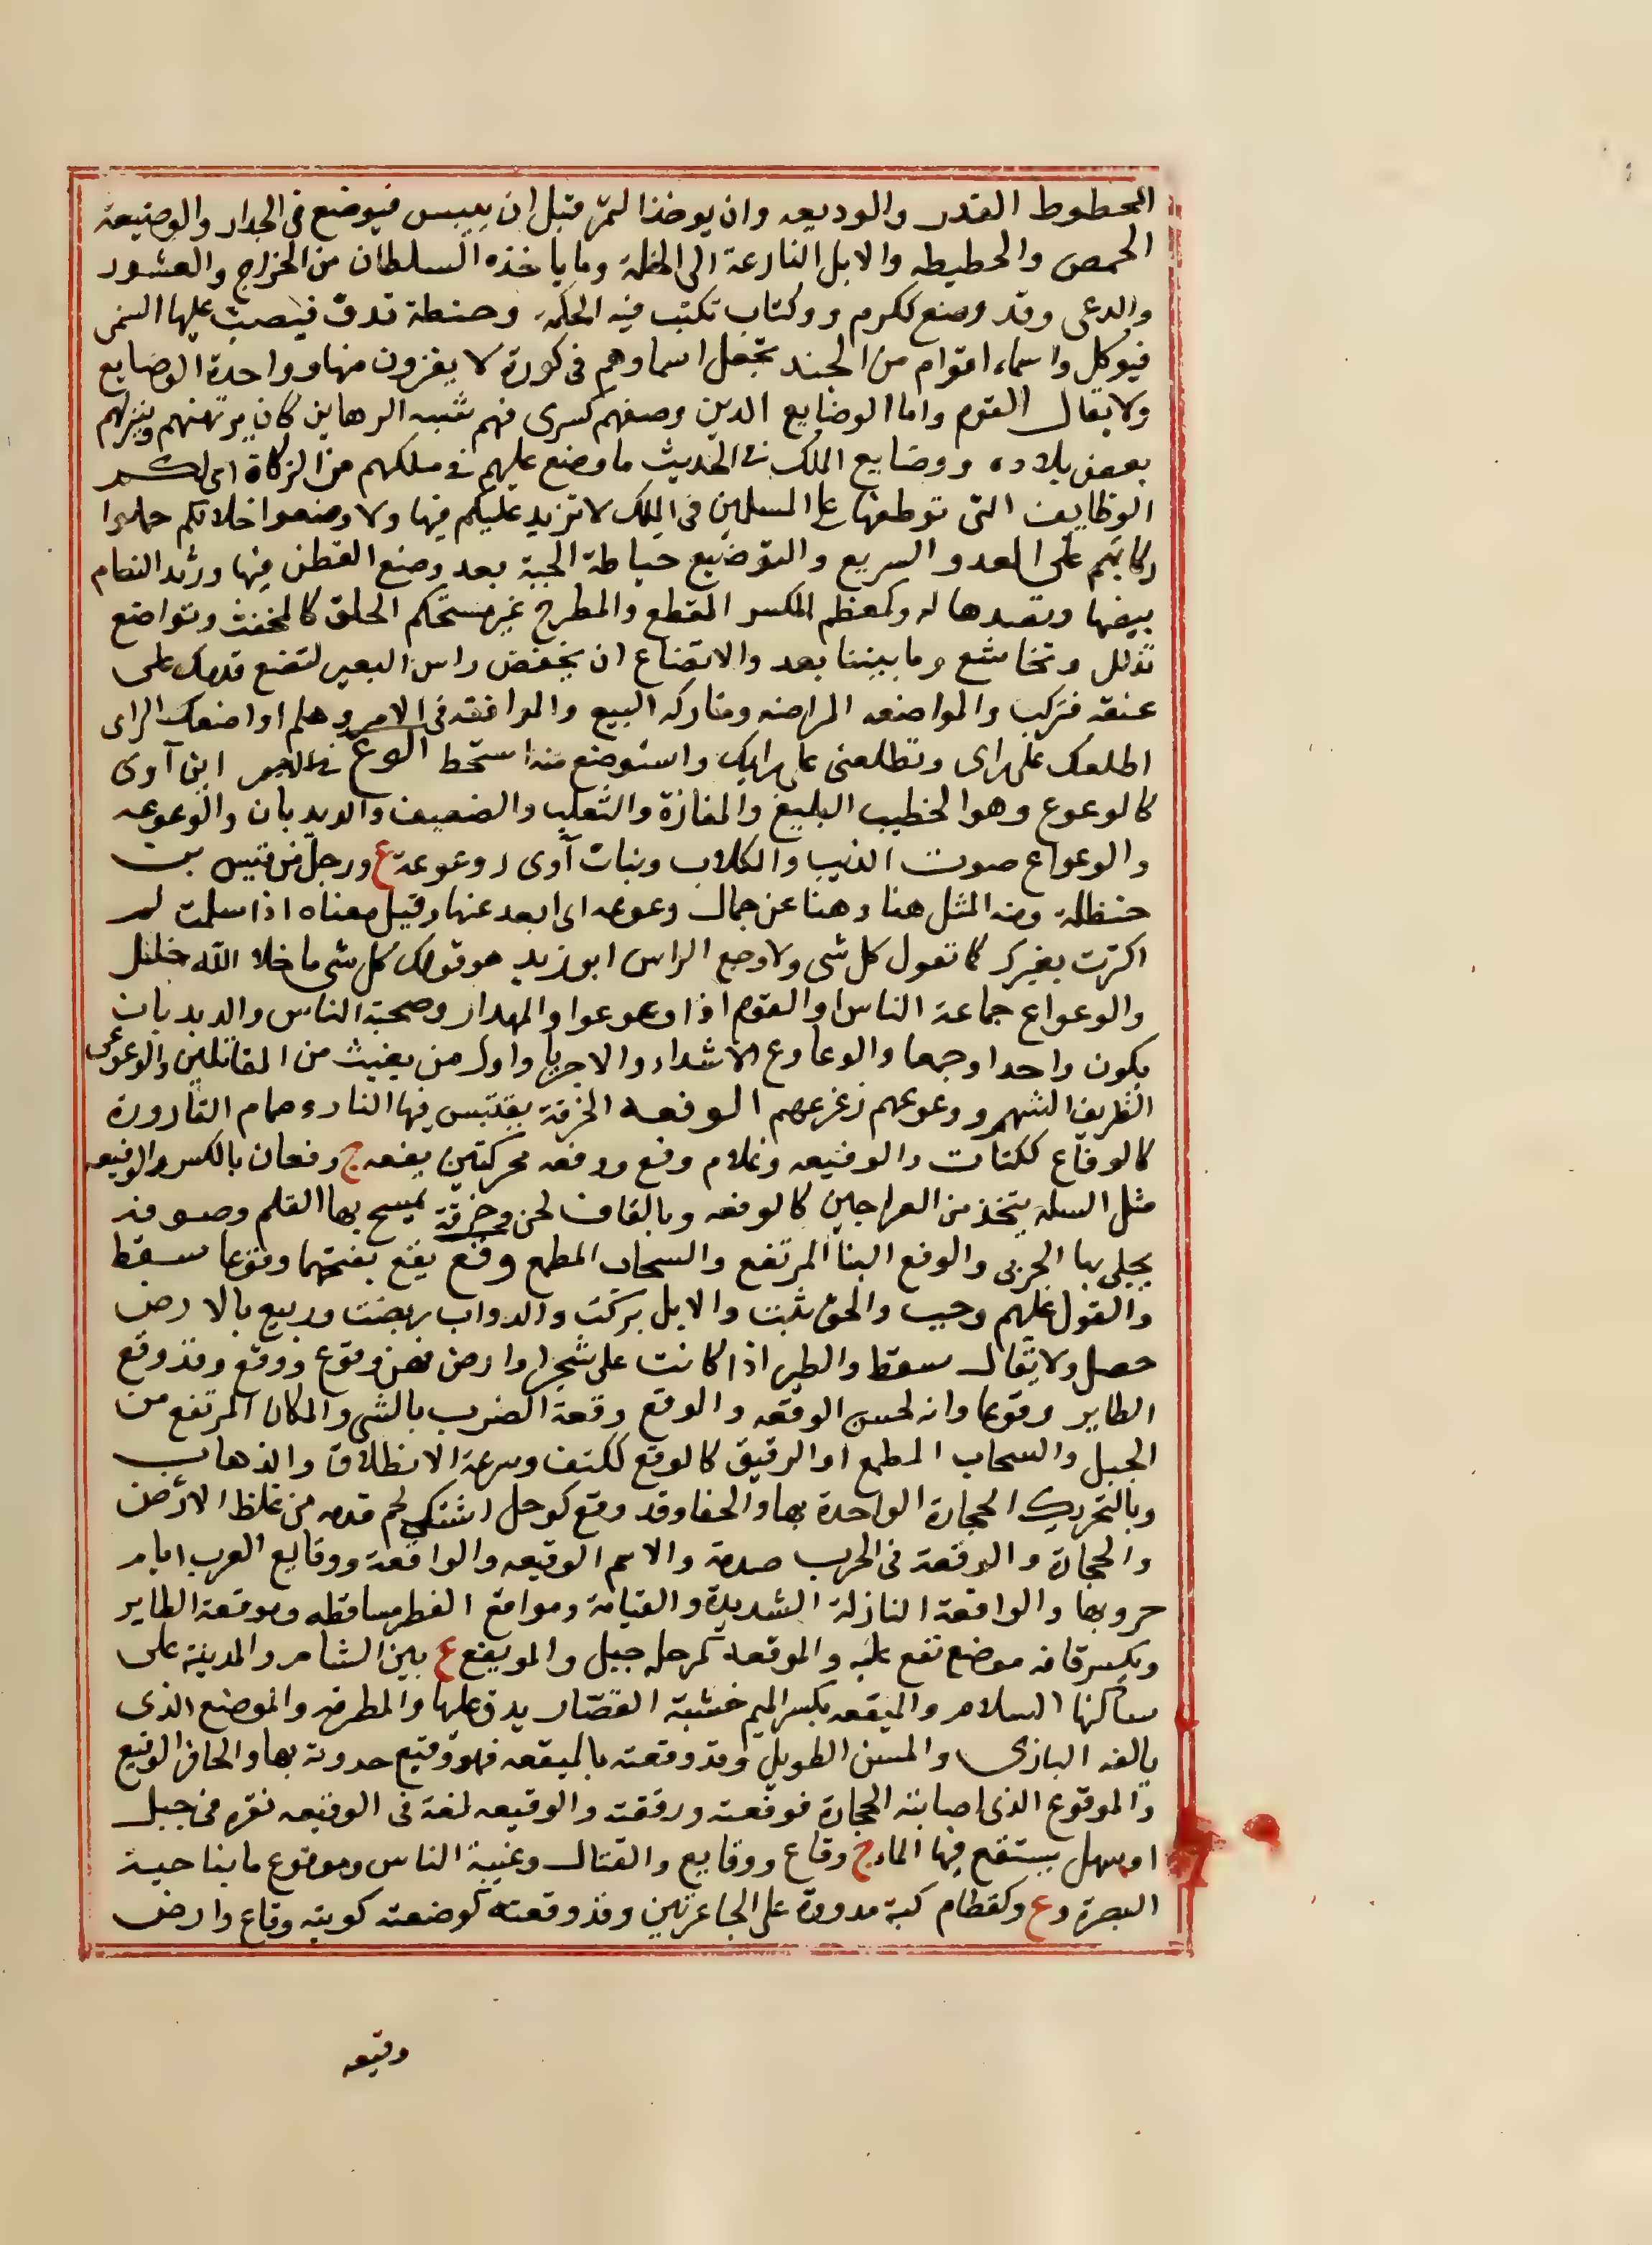 المحطوط القدر والوديعه وان يوخذ التمر قبل ان ييبس فيوضع في الجرار والوضيعة
الحمض والحطيطه والابل النازعة الى الخلة وما ياخذه السلطان من الخراج والعشور
والدعى وقد وضع ككرم ووكتاب تكتب فيه الحكمة وحنطة تدق فيصب عليها السمن
فيوكل واسماء اقوام من الجند تجعل اسماوهم في كورة لا يغزون منها وواحدة الوضايع
ولا يقال القوم واما الوضايع الذين وضعهم كسرى فهم شبه الرهاين كان يرتهنهم وينزلهم
بعض بلاده ووضايع الملك في الحديث ما وضع عليهم في ملكهم من الزكاة اى لكم
الوظايف التى نوظفها على المسلمين في الملك لا نزيد عليكم فيها ولا وضعوا خلالكم حملوا
ركابهم على العدو السريع والتوضيع خياطة الجبة بعد وضع القطن فيها ورثد النعام
بيضها ونضدها له وكمعظم المكسر المقطع والمطرح غير مستحكم الخلق كالمخنث وتواضع
تذلل وتخاشع وما بيننا بعد والاتضاع ان يخفض راس البعير لتضع قدمك على
عنقه فتركب والمواضعه المراهنه ومتاركه البيع والموافقه في الامر وهلم اواضعك الراى
اطلعك على راى وتطلعنى على رايك واستوضع منه استحط الوع ابن آوى
كالوعوع وهو الخطيب البليغ والمفازة والثعلب والضعيف والديدبان والوعوعه
والوعواع صوت الذيب والكلاب وبنات آوى ووعوعة ع ورجل من قيس بن
حنظلة ومنه المثل هنا وهنا عن جمال وعوعه اى ابعد عنها وقيل معناه اذا سلمت لم
اكترث بغيرك كما تقول كل شى ولا وجع الراس ابو زيد هو قولك كل شى ما خلا الله خلل
والوعواع جماعة الناس او القوم اذا وعوعوا والمهدار وضجة الناس والديدبان
يكون واحدا وجمعا والوعاوع الاشداء والاجريا واول من يغيث من المقاتلين والوعوعى
الظريف الشهم ووعوعهم زعزعهم الوفعه الخرقة يقتبس فيها النار وصمام القارورة
كالوفاع ككتاب والوفيعه وغلام وفع ووفعه محركتين يفعه ج وفعان بالكسر والوفيعه
مثل السله يتخذ من العراجين كالوفعه وبالقاف لحن وخرقة يمسح بها القلم وصوفه
يجلى بها الجربى والوفع البنا المرتفع والسحاب المطمع وقع يقع بفتحهما وقوعا سقط
والقول عليهم وجب والحق ثبت والابل بركت والدواب ربضت وربيع بالارض
حصل ولا يقال سقط والطير اذا كانت على شجر او ارض فهن وقوع ووقع وقد وقع
الطاير وقوعا وانه لحسن الوقعه والوقع وقعة الضرب بالشى والمكان المرتفع من
الجبل والسحاب المطمع او الرقيق كالوقع ككتف وسرعة الانطلاق والذهاب
وبالتحريك الحجارة الواحدة بهاو الحفا وقد وقع كوجل اشتكى لحم قدمه من غلظ الارض
والحجارة والوقعة في الحرب صدمة والاسم الوقيعه والواقعة ووقايع العرب ايام
حروبها والواقعة النازلة الشديدة والقيامة ومواقع القطر مساقطه وموقعة الطاير
وبكسر قافه موضع تقع عليه والموقعه كمرحله جبل والمويقع ع بين الشام والمدينة على
ساكنها السلام والميقعه بكسر الميم خشبة القصار يدق عليها والمطرقه والموضع الذى
يالفه البازى والمسن الطويل وقد وقعته بالميقعه فهو وقيع حددته بها والحافر الوقيع
والموقوع الذى اصابته الحجارة فوقعته ورققته والوقيعه لغة في الوفيعه نقره في جبل
او سهل يستنقع فيها الما ج وقاع ووقايع والقتال وغيبة الناس وموقوع ما بناحية
البصرة وع وكقطام كية مدورة على الجاعرتين وقد وقعته كوضعته كويته وقاع وارض
وقيعه